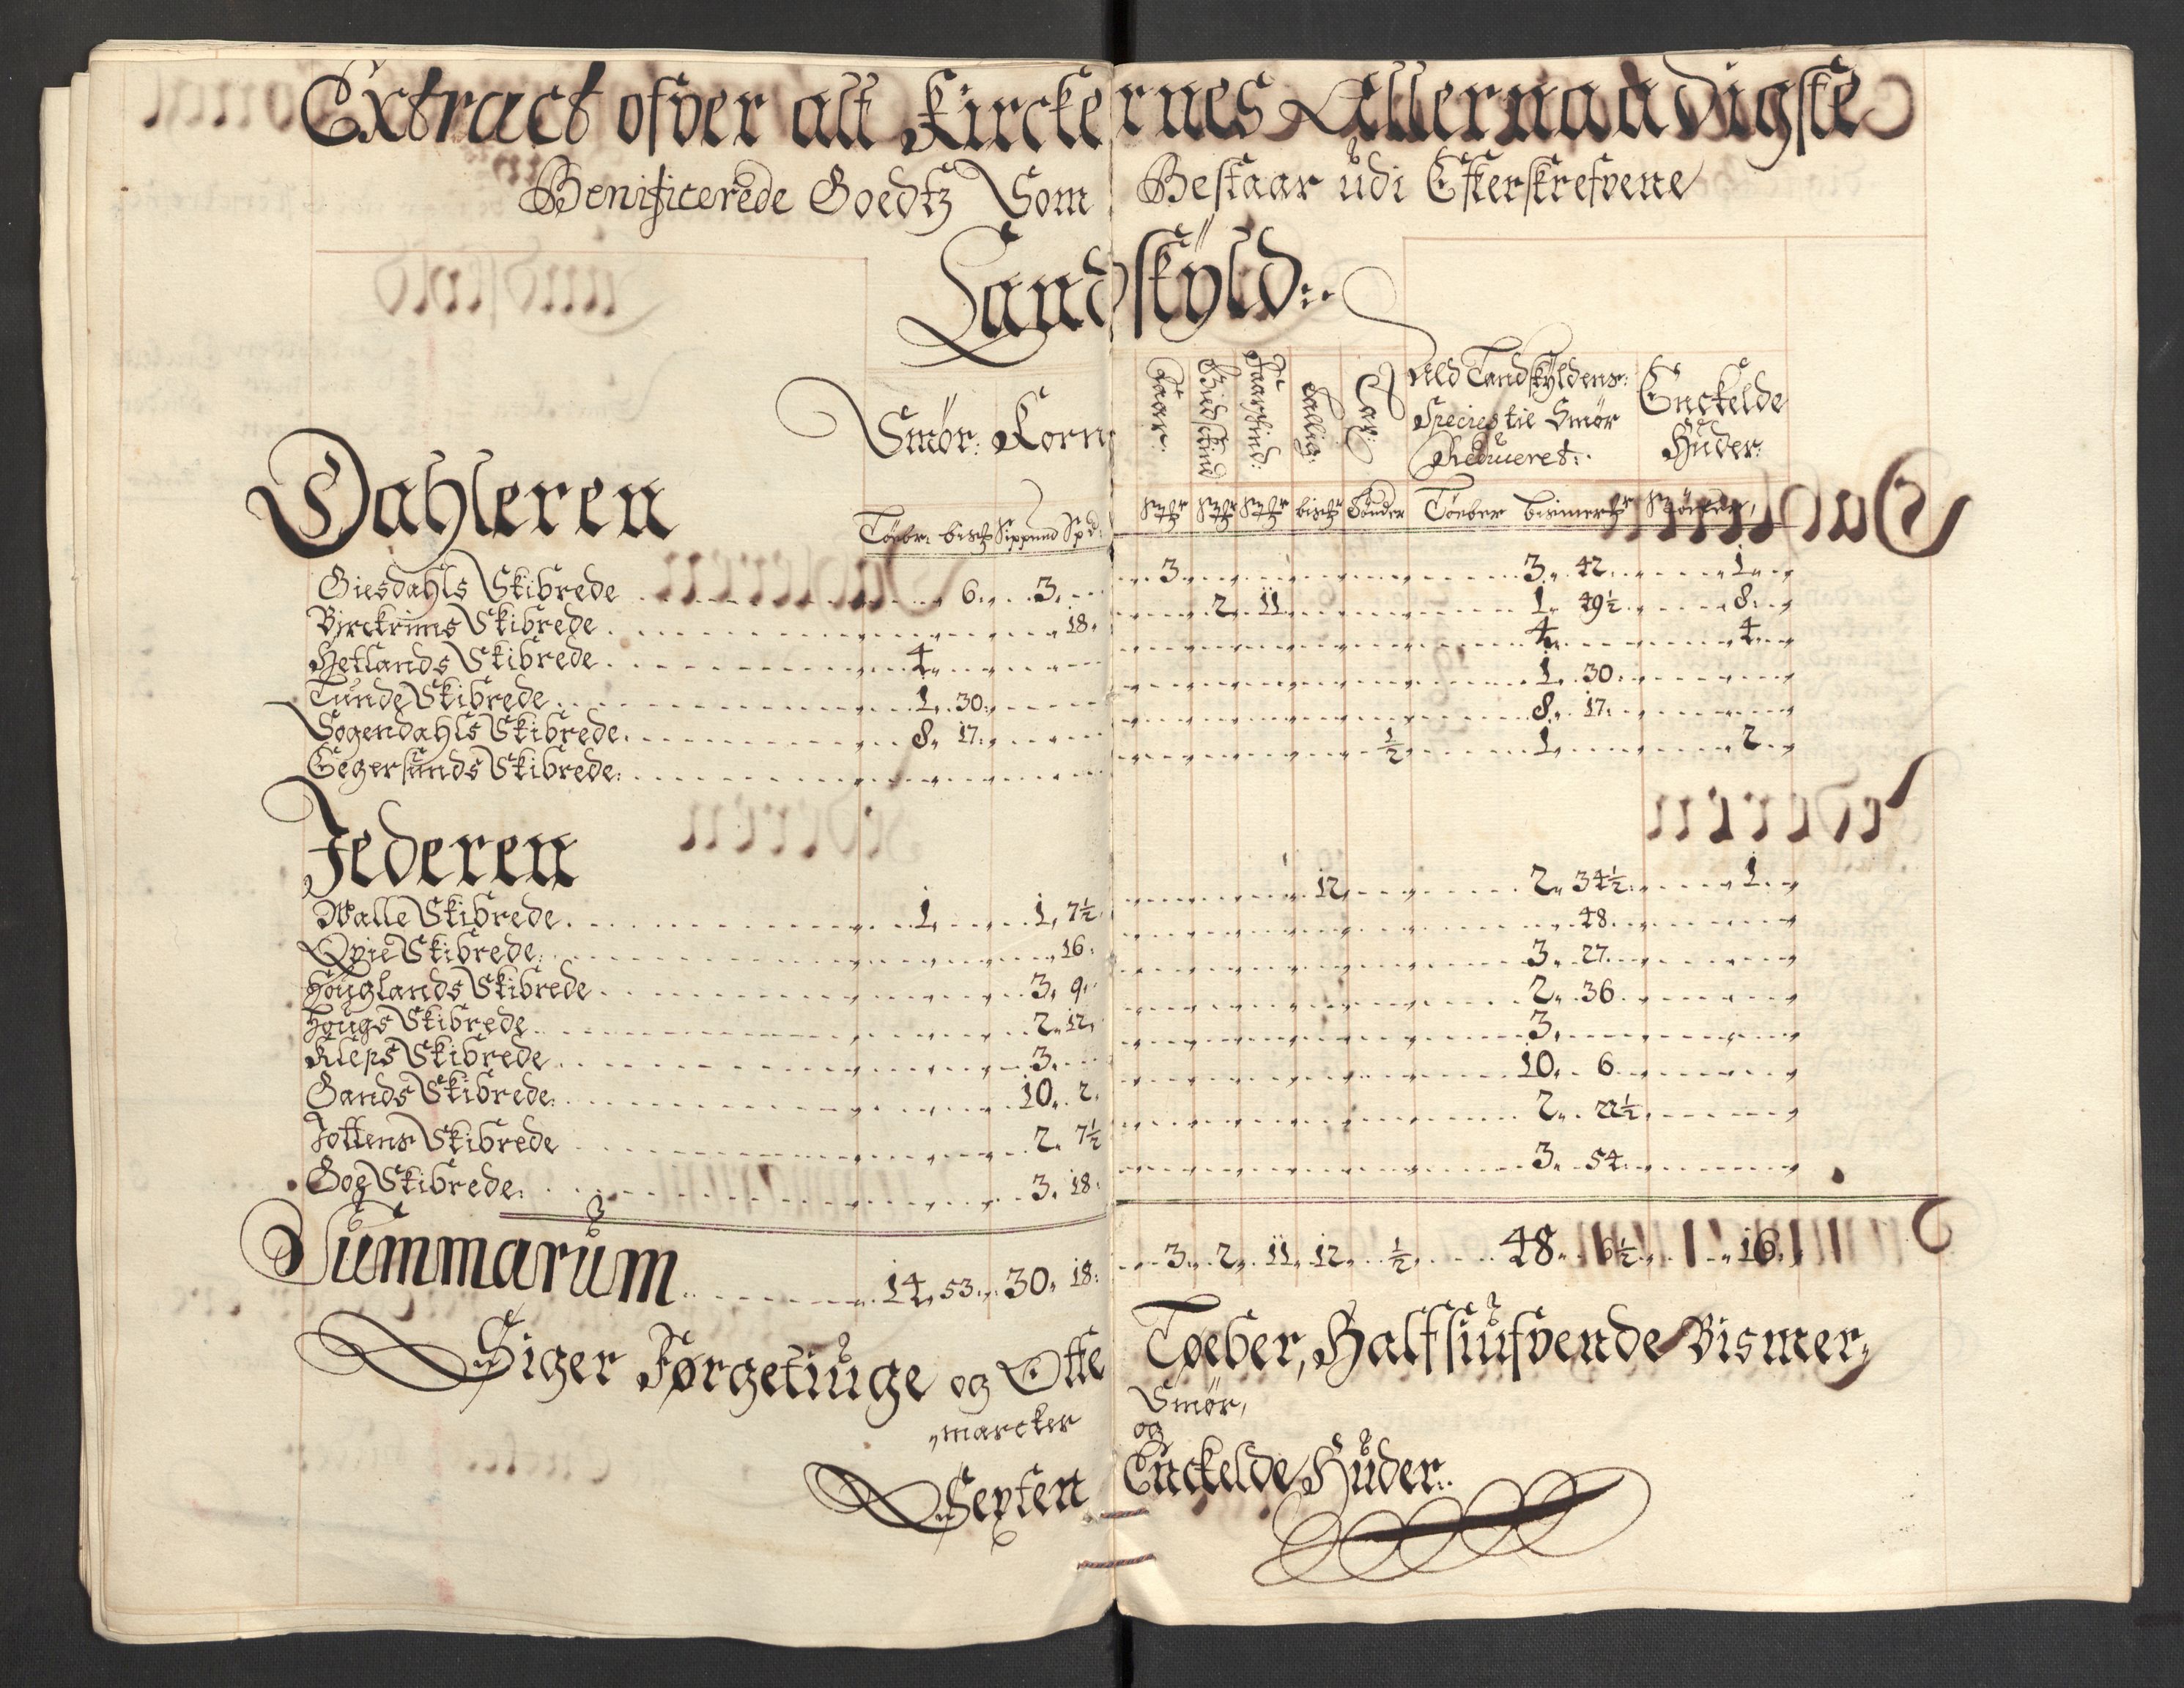 Extract ofver alt Kirckernes Allernaadigste
Benificerede Goedtz Som Bestaar udi Efterskrefvene
Landskÿld:.
Smør: Korn Faar: Giedskind Faarskind: Salt: Ald Landskÿldens: Enckelde
Species til Smør Huder:
Reduceret:.
Dahleren
Töeber Tönder Töeber
Giesdahls Skibrede 6. 3. 3 3. 42. 1
Birckrims Skibrede 18. 2. 11 1. 49½ 8
Hetlands Skibrede 4 4 4
Lunde Skibrede 1. 30. 1. 30
Sogendahls Skibrede. 8. 17. 8. 17.
Eegersunds Skibrede: ½ 1 2
Jederen
Walle Skibrede. 1 1. 7½ 12 2. 34½ 1
Qvie Skibrede. 16. 48
Höuglands Skibrede 3. 9. 3. 27
Hougs Skibrede 2. 12. 2. 36
Kleps Skibrede 3. 3.
Gands Skibrede. 10. 2. 10. 6
Jottens Skibrede 2. 7½ 2. 22½
Goe Skibrede. 3. 18. 3. 54.
Summarum 14. 53. 30. 18. 3. 2. 11. 12. ½ 48. 6½ 16.
Siger Førgetiuge og Otte Tøeber, Halfsiufvende Bismer
marcker Smør,
og
Sexten Enckelde Huder:.